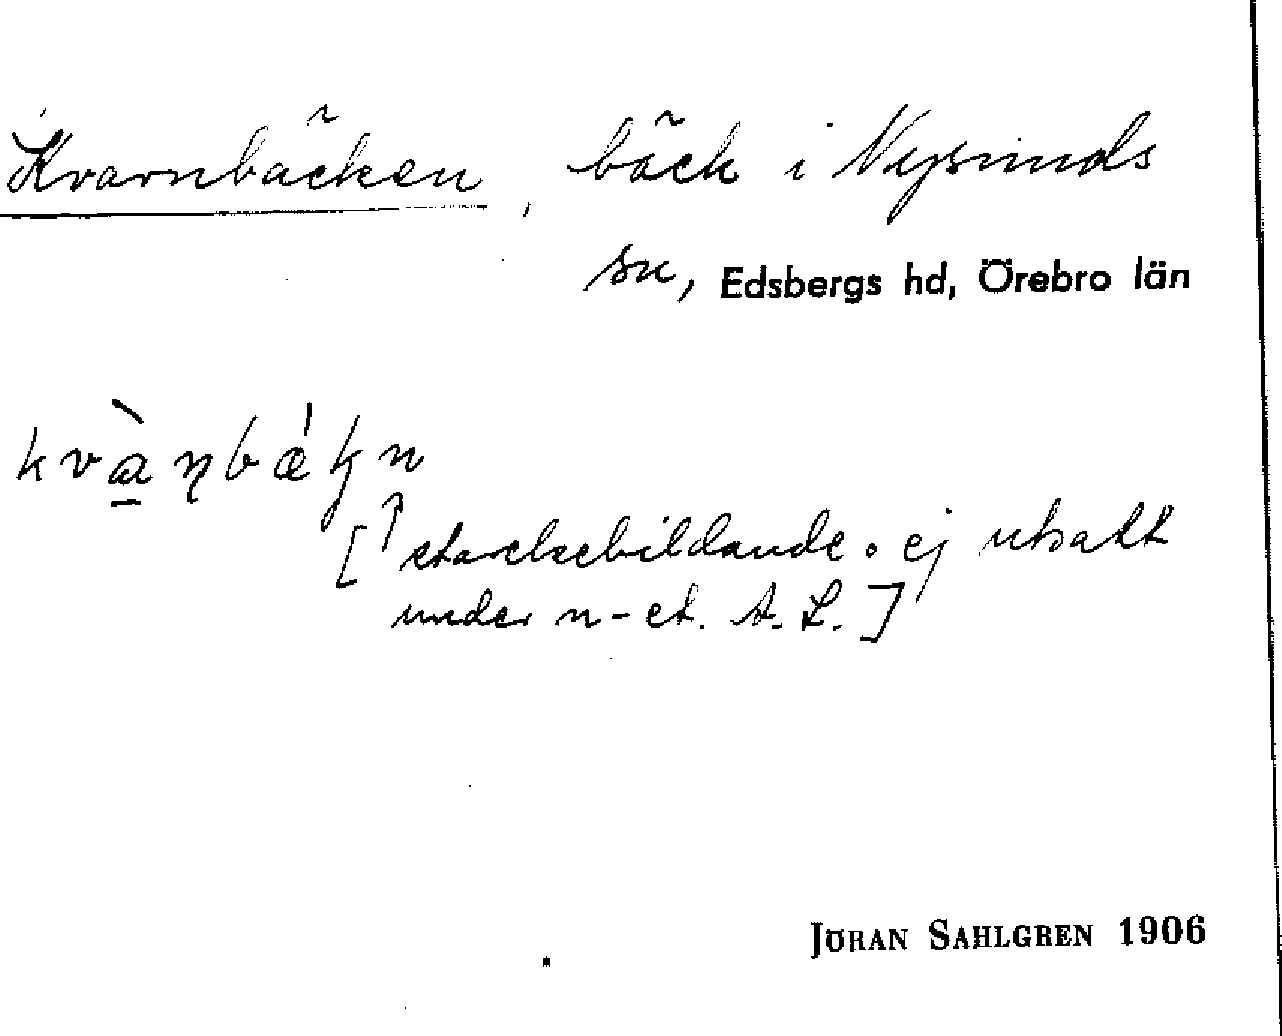 Kvarnbäcken, bäck i Nysunds
sn, Edsbergs hd, Örebro län
kvàṇbǽkn
[↑ stavelsebildande ° ej utsatt
under n-et. A. L.]
JÖRAN SAHLGREN 1906